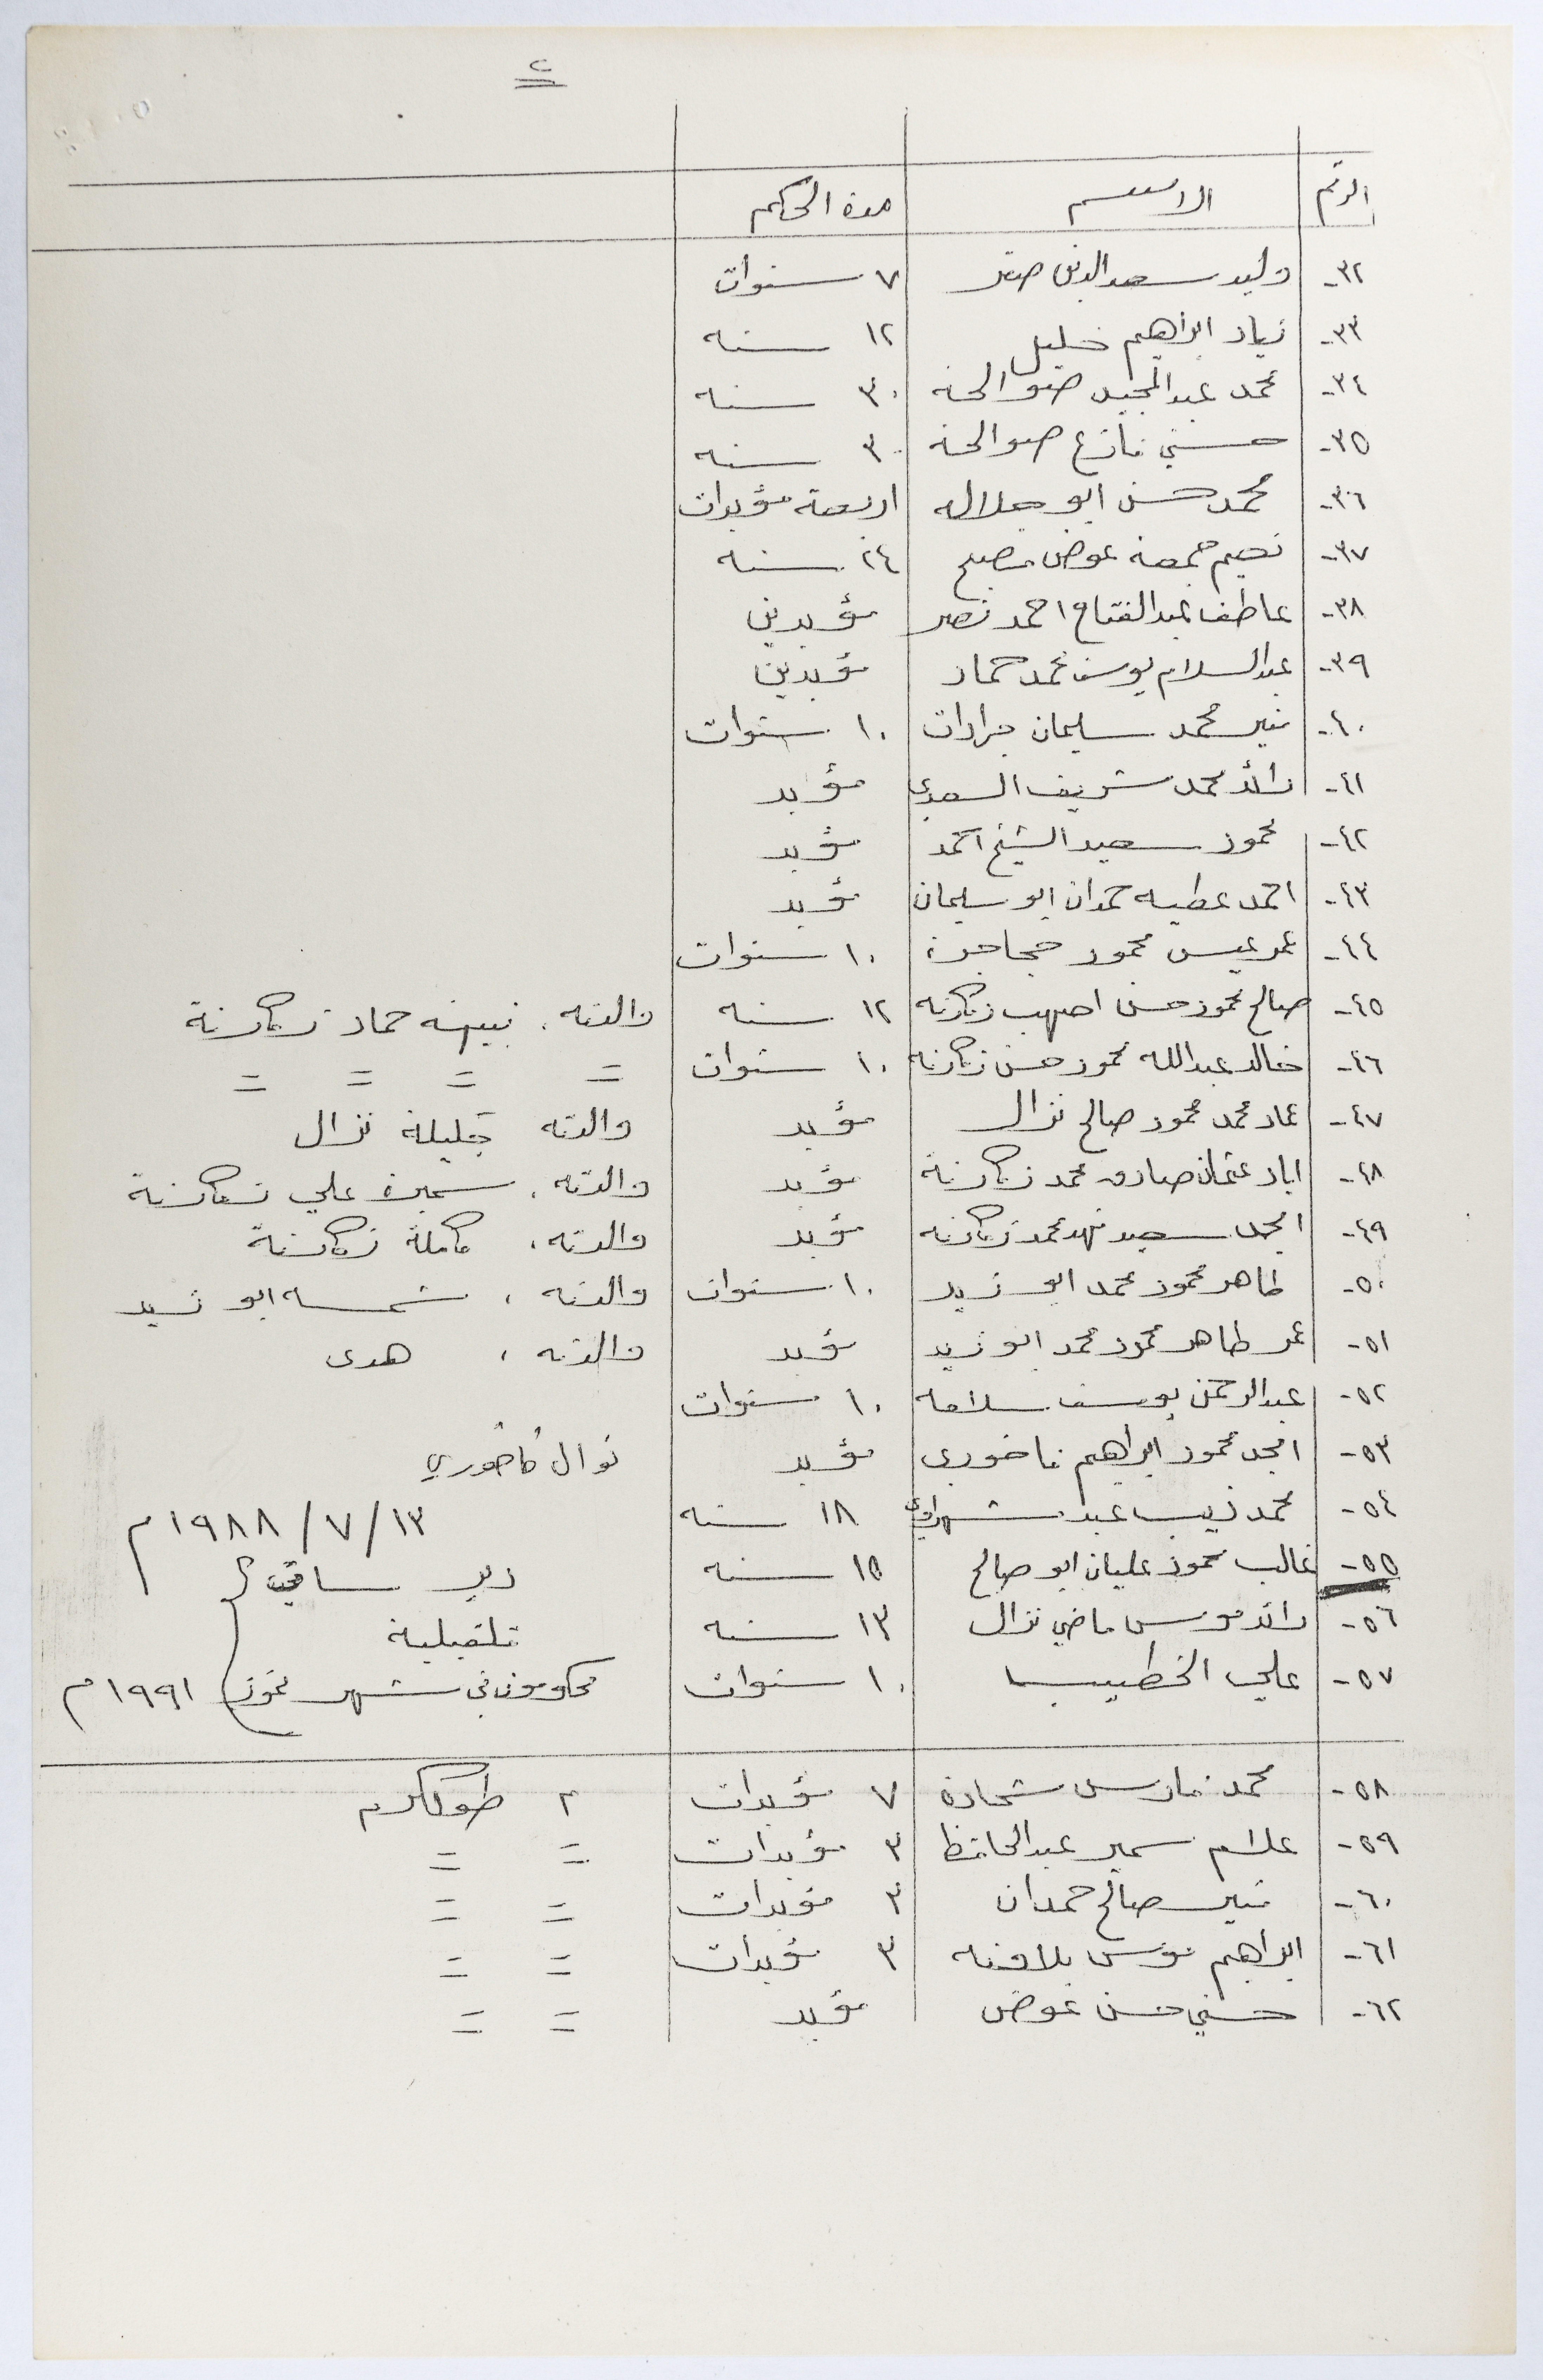 ٢
الرقم الاسم مدة الحكم
٣٢- وليد سعد الدين صقر ٧ سنوات
٣٣- زياد ابراهيم خليل ١٢ سنه
٣٤- محمد عبدالمجيد صوالحه ٣٠ سنه
٣٥- حسني فازع صوالحه ٣٠ سنه
٣٦- محمد حسن ابو جلاله اربعة مؤبدات
٣٧- نعيم جمعه عوض مصبح ٢٤ سنه
٣٨- عاطف عبدالفتاح احمد نصر مؤبدين
٣٩- عبدالسلام يوسف محمد حماد مؤبدين
٤٠- منير محمد سليمان جرادات ١٠ سنوات
٤١- رائد محمد شريف السعدي مؤبد
٤٢- محمود سعيد الشيخ احمد مؤبد
٤٣- احمد عطيه حمدان ابو سليمان مؤبد
٤٤- عمر عيسى محمود حجاجرة ١٠ سنوات
٤٥- صالح محمود حسن اصهب زكارنه ١٢ سنه والدته، نبيهه حماد زكارنة
٤٦- خالد عبدالله محمود حسن زكارنه ١٠ سنوات = = = =
٤٧- عماد محمد محمود صالح نزال مؤبد والدته جليلة نزال
٤٨- اياد عثمان صادق محمد زكارنة مؤبد والدته، سميرة علي زكارنة
٤٩- امجد سعيد فهد محمد زكارنه مؤبد والدته، كاملة زكارنة
٥٠- طاهر محمود محمد ابو زيد ١٠ سنوات والدته، شمسه ابو زيد
٥١- عمر طاهر محمود محمد ابو زيد مؤبد والدته، هدى
٥٢- عبدالرحمن يوسف سلامه ١٠ سنوات
٥٣- امجد محمود ابراهيم فاخوري مؤبد نوال فاخوري
٥٤- محمد ذيب عبد ١٨ سنه ١٣/٧/١٩٨٨م
٥٥- غالب محمود عليان ابو صالح ١٥ سنه دير
٥٦- رائد موسى ماضي نزال ١٣ سنه قلقيلية
٥٧- علي الخطيب ١٠ سنوات محكومون في شهر تموز ١٩٩١م
٥٨- محمد فارس شحادة ٧ مؤبدات م طولكرم
٥٩- علام سمير عبدالحافظ ٣ مؤبدات = =
٦٠- منير صالح حمدان ٣ مؤبدات = =
٦١- ابراهيم يونس بلاونه ٣ مؤبدات = =
٦٢- حسني حسن عوض مؤبد = =